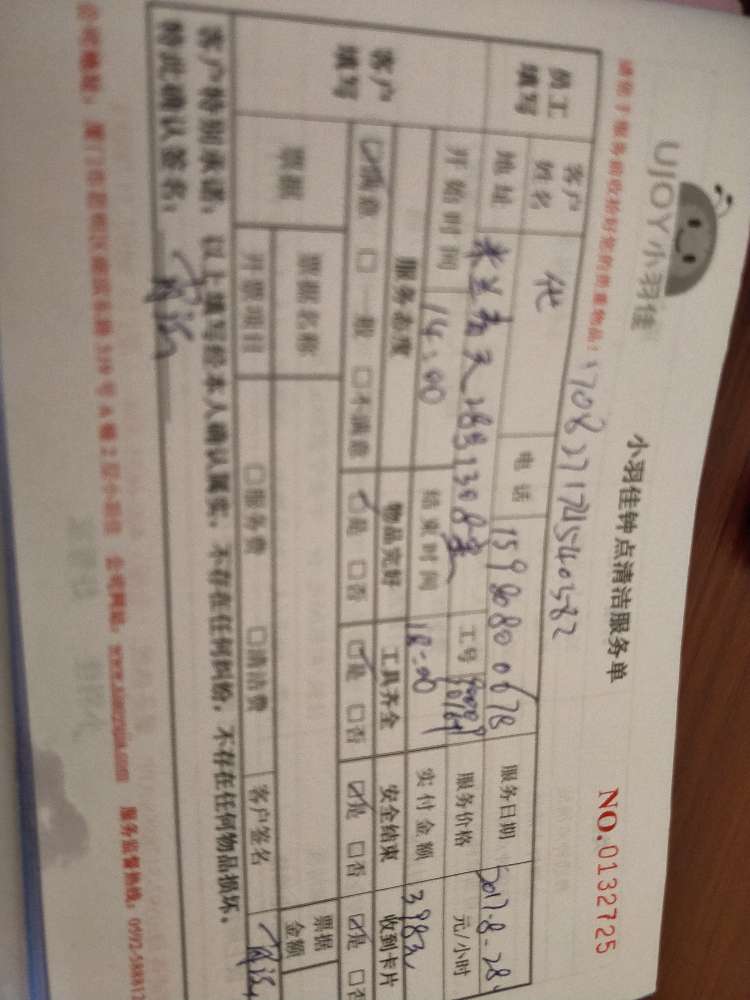 UJOY小羽佳
小羽佳钟点清洁服务单
NO.0132725
请您于服务前收拾好您的贵重物品!
员工填写
客户姓名 代 电话 服务日期 2017-8-28
地址 米兰春天 工号 服务价格 元/小时
开始时间 14:00 结束时间 18:00 实付金额 398元
客户填写
服务态度 物品完好 工具齐全 安全结束 收到卡片
☑满意 □一般 □不满意 ☑是 □否 ☑是 □否 ☑是 □否 ☑是 □否
票据 票据名称 票据金额
开票项目 □服务费 □清洁费 客户签名
客户特别承诺:以上填写经本人确认属实,不存在任何纠纷,不存在任何物品损坏。
特此确认签名:
公司地址:厦门市思明区 339号A幢2层小羽佳 公司网站: 服务监督热线:0592-58812